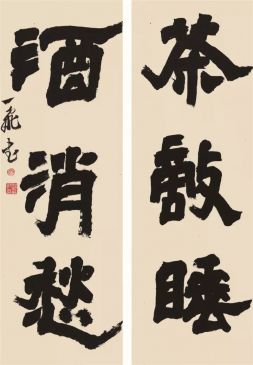 茶敵睡
酒消愁
一飛書